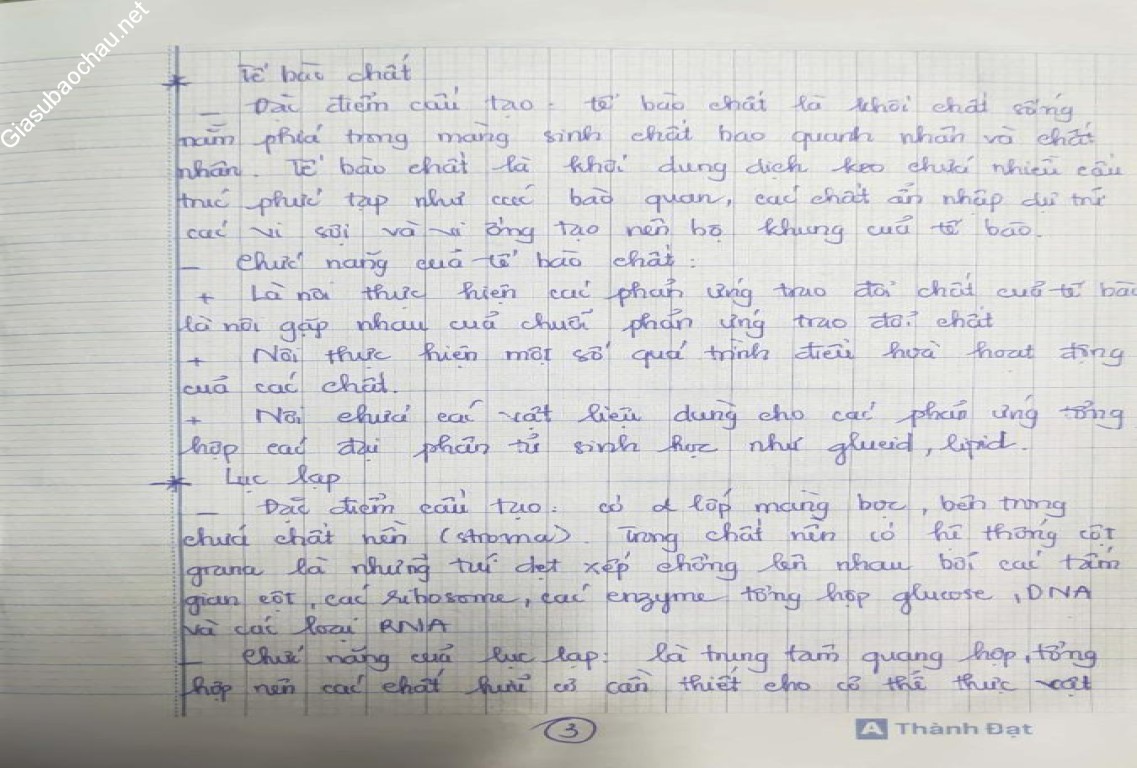 Giasubaochau.net
* Tế bào chất
- Đặc điểm cấu tạo. tế bào chất là khối chất sống
nằm phía trong màng sinh chất bao quanh nhân và chất
nhân. Tế bào chất là khối dung dịch keo chứa nhiều cấu
trúc phức tạp như các bào quan, các chất ẩn nhập dự trữ
các vi sợi và vi ống tạo nên bộ khung của tế bào.
- Chức năng của tế bào chất:
+ Là nơi thực hiện các phản ứng trao đổi chất của tế bào
là nơi gặp nhau của chuỗi phản ứng trao đổi chất
+ Nơi thực hiện một số quá trình điều hoà hoạt động
của các chất.
+ Nơi chứa các vật liệu dùng cho các phản ứng tổng
hợp các đại phân tử sinh học như glucid, lipid.
* Lục lạp
- Đặc điểm cấu tạo. có 2 lớp màng bọc, bên trong
chứa chất nền (stroma). Trong chất nền có hệ thống cột
grana là những túi dẹt xếp chồng lên nhau bởi các tấm
gian cột, các ribosome, các enzyme tổng hợp glucose, DNA
và các loại RNA
- Chức năng của lục lạp: là trung tâm quang hợp, tổng
hợp nên các chất hữu cơ cần thiết cho cơ thể thực vật
3
A Thành Đạt